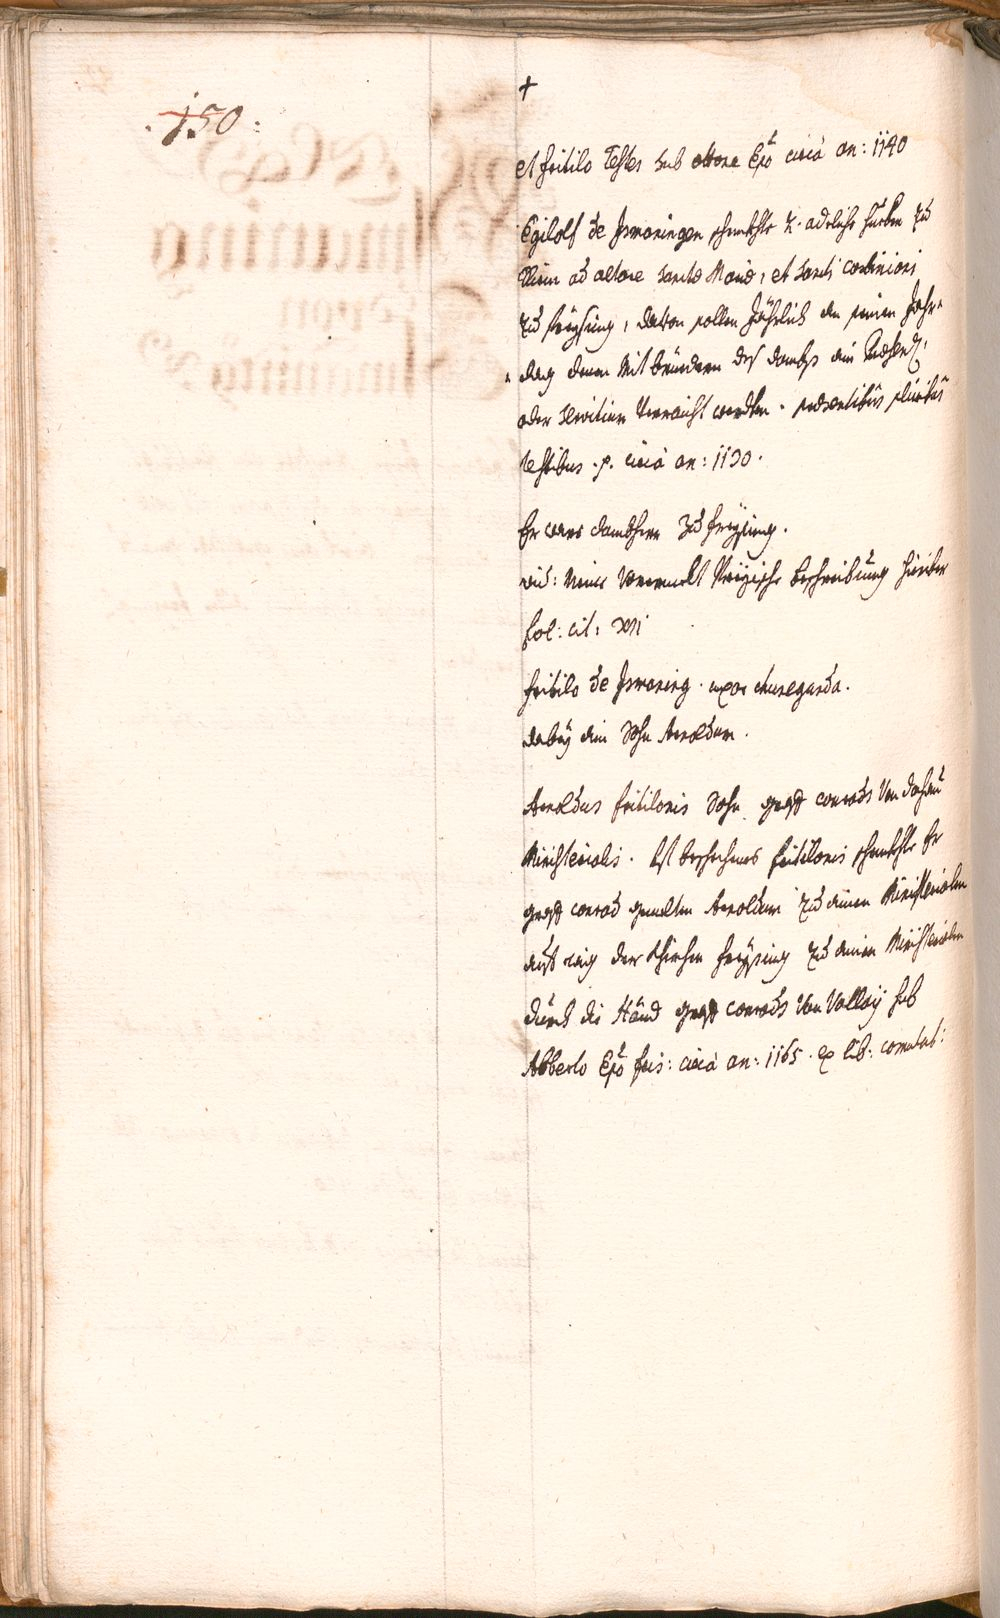 . 150 :
+
et fritilo Testes sub ottone Epo circa an: 1140
Egilolf de Jsmaningen schenckhte 2. adeliche Hueben zu
ad altare sanctae Mariae, et sancti corbiniani
zu freysing, davon sollen Jährlich an seinen Jahr-
dag denen Mitbrüedern des dombs ein
oder servitium verraicht werden. praesentibus pluribus
testibus. p. circa an: 1130.
Er ware dombherr zu freysing.
vid: meine Beschreibung hierüber
fol: cit: xvii
fritilo de Jsmaning. uxor chunegunda.
dabey ein Sohn Arnoldum.
Arnoldus fritilonis Sohn graff conrads von dachau
Ministerialis. Ist beschechnes fritilonis schenckhte Er
graff conrad gemelten Arnoldum zu einen Ministerialen
der Khirchen freysing zu einen Ministerialen
durch die Händ graff conrads von Valley sub
Alberto Epo fris: circa an: 1165. ex lib: comutat: